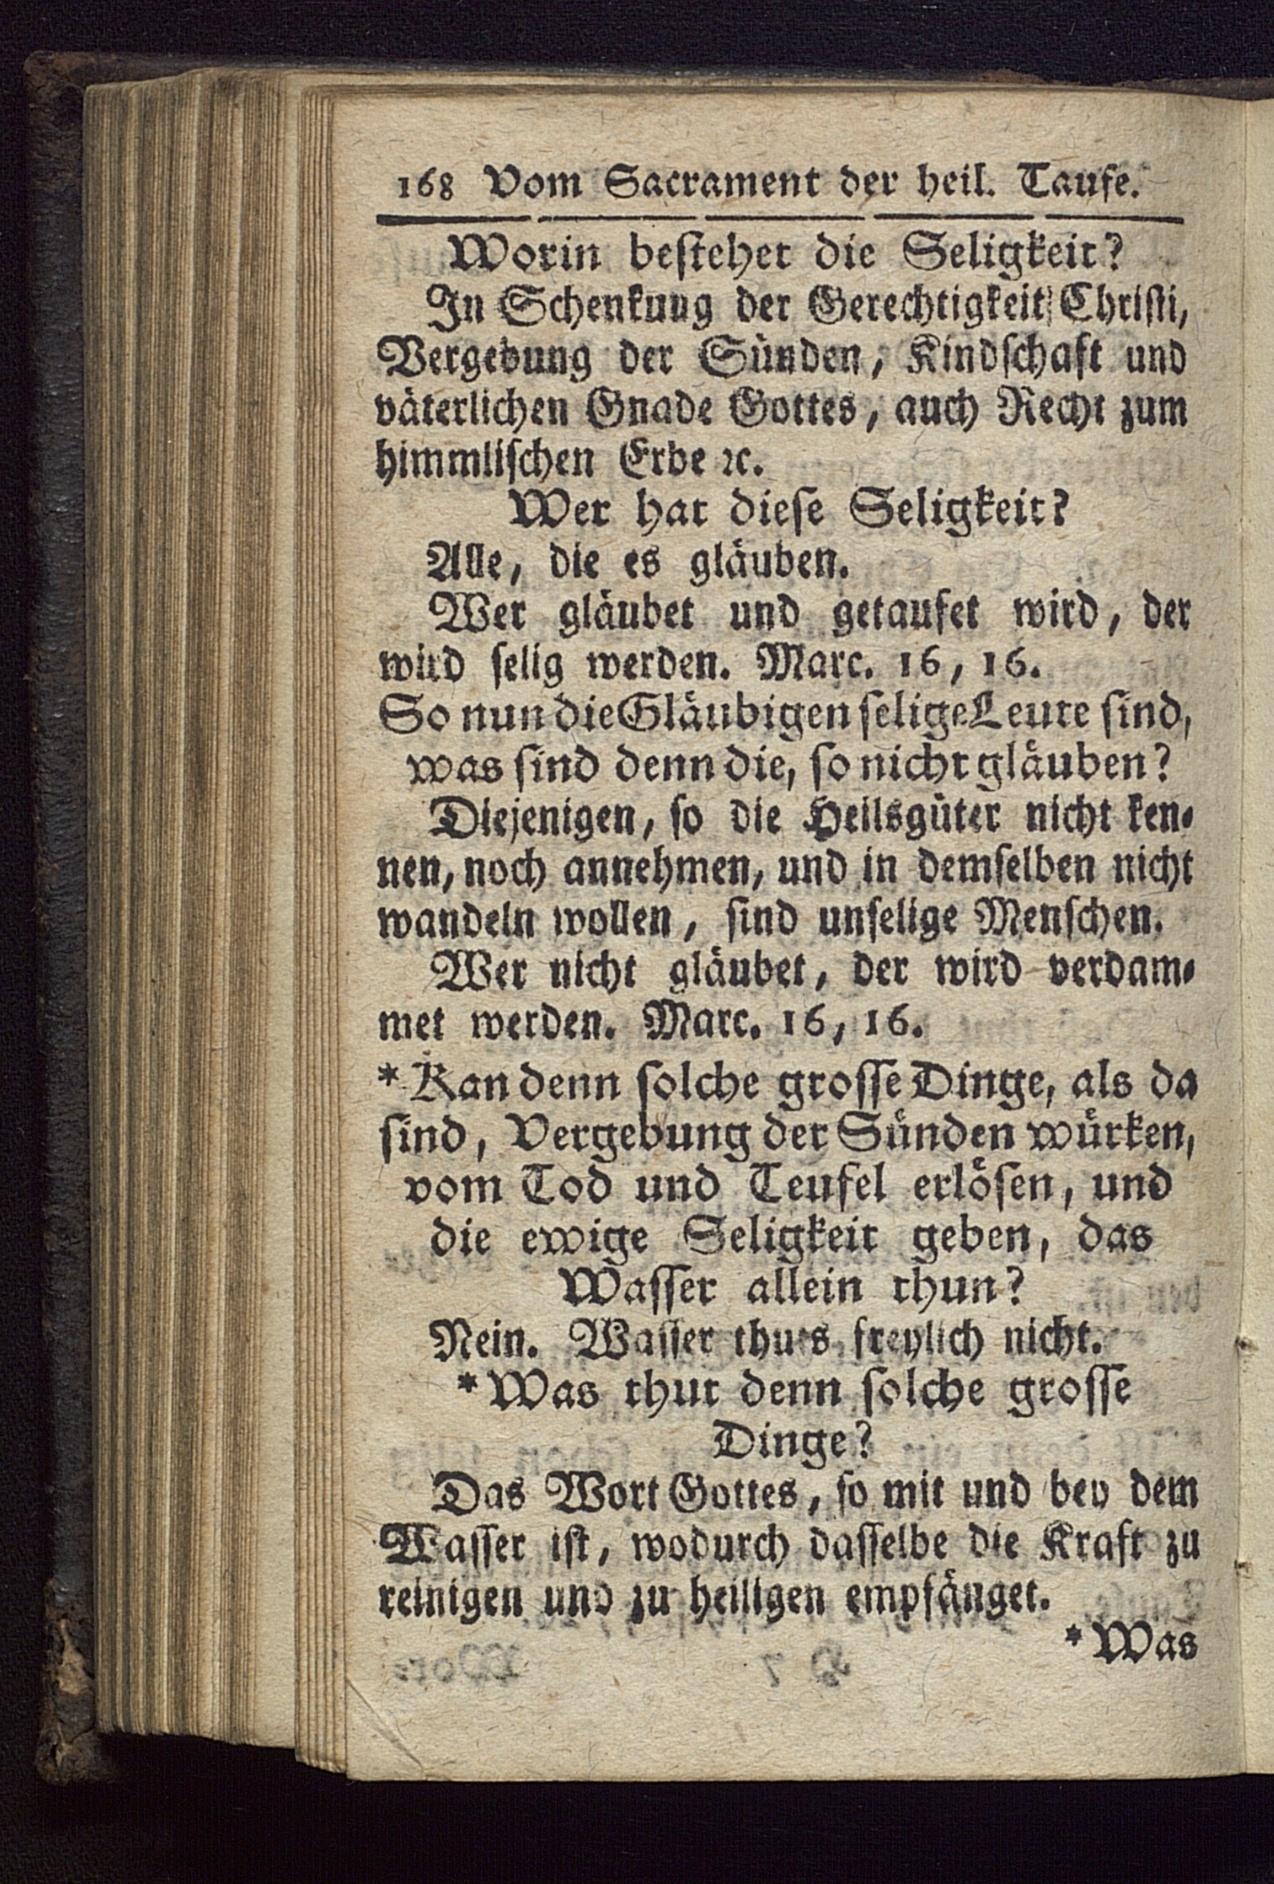 168 Vom Sacrament der heil. Taufe.
Worin bestehet die Seligkeit?
In Schenkung der Gerechtigkeit Christi,
Vergebung der Sünden, Kindschaft und
väterlichen Gnade Gottes, auch Recht zum
himmlischen Erbe ꝛc.
Wer hat diese Seligkeit?
Alle, die es gläuben.
Wer gläubet und getaufet wird, der
wird selig werden. Marc. 16, 16.
So nun die Gläubigen selige Leute sind,
was sind denn die, so nicht gläuben?
Diejenigen, so die Heilsgüter nicht ken-
nen, noch annehmen, und in demselben nicht
wandeln wollen, sind unselige Menschen.
Wer nicht gläubet, der wird verdam-
met werden. Marc. 16, 16.
* Kan denn solche grosse Dinge, als da
sind, Vergebung der Sünden würken,
vom Tod und Teufel erlösen, und
die ewige Seligkeit geben, das
Wasser allein thun?
Nein. Wasser thuts freylich nicht.
* Was thut denn solche grosse
Dinge?
Das Wort Gottes, so mit und bey dem
Wasser ist, wodurch dasselbe die Kraft zu
reinigen und zu heiligen empfänget.
* Was